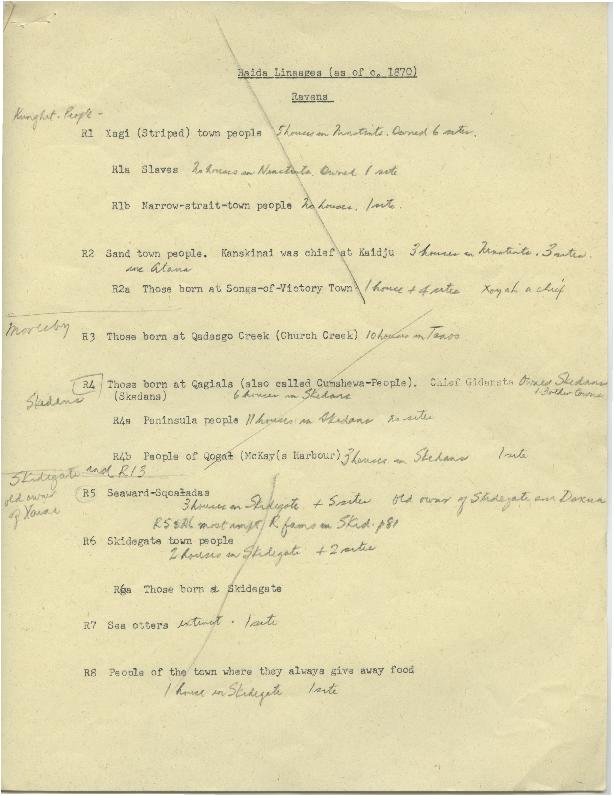 Haida Lineages (as of c. 1870)
Ravens
Kunghit-People-
R1 Xagi (Striped) town people 5 houses in Ninstints. Owned 6 sites.
R1a Slaves No houses in Ninstints. Owned 1 site
R1b Narrow-strait-town people No houses. 1 site.
R2 Sand town people. Kanskinai was chief at Kaidju 3 houses in Ninstints. 3 sites.
R2a Those born at Songs-of-Victory Town 1 house + 4 sites Xoyah a chief
Moresby
R3 Those born at Qadasgo Creek (Church Creek) 10 houses in Tanoo
R4 Those born at Qagials (also called Cumshewa-People). Chief Gidansta Owned Skedans
Skedans (Skedans) 6 houses in Skedans 13 other towns
R4a Peninsula people 11 houses in Skedans no sites
R4b People of Qogał (McKay(s Harbour) 3 houses in Skedans 1 site
Skidegate and R13
old owner of
R5 Seaward-Sqoaładas
3 houses in Skidegate. + 5 sites Old owner of Skidegate
R5 & R6 most impt R fams in Skid. p81
R6 Skidegate town people
2 houses in Skidegate + 2 sites
R6a Those born at Skidegate
R7 Sea otters extinct. 1 site
R8 People of the town where they always give away food
1 house in Skidegate 1 site